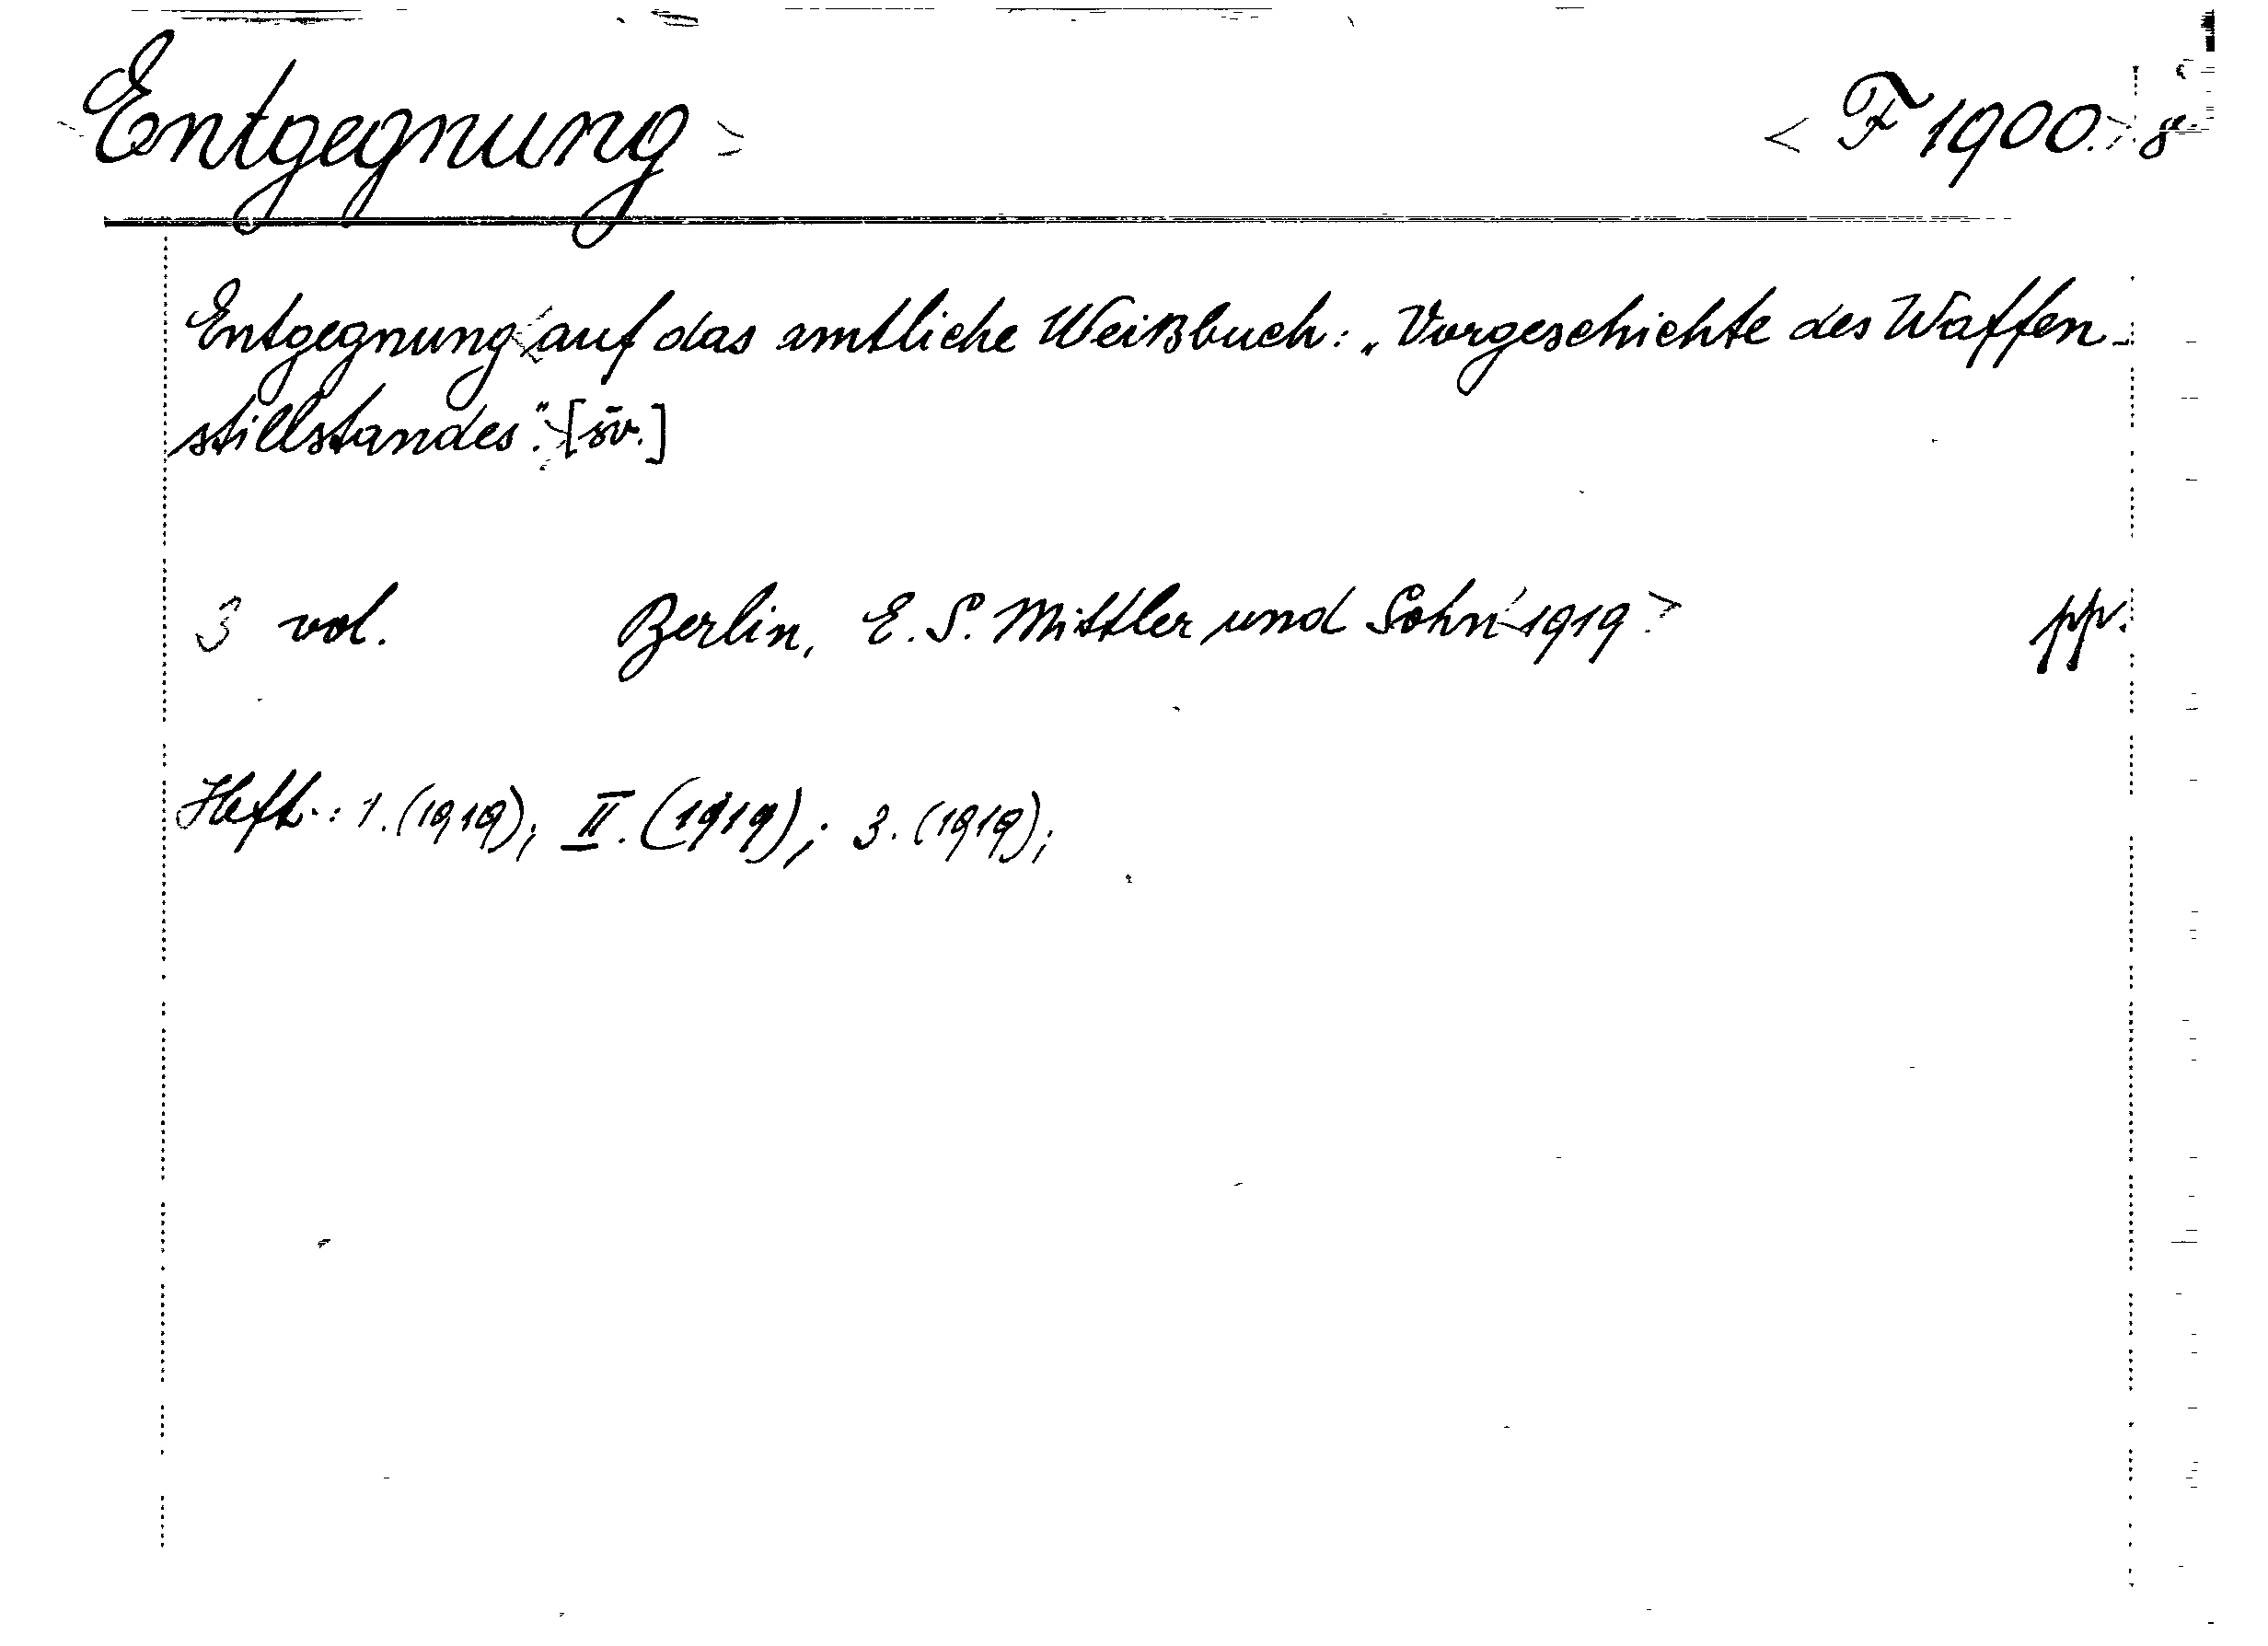 Entgegnung
< F 1900. > 8
Entgegnung auf das amtliche Weißbuch: „Vorgeschichte des Waffen-
stillstandes." [šv.]
3 vol. Berlin, E. S. Mittler und Sohn 1919 ppr.
Heft.: 1. (1919); II. (1919); 3. (1919);